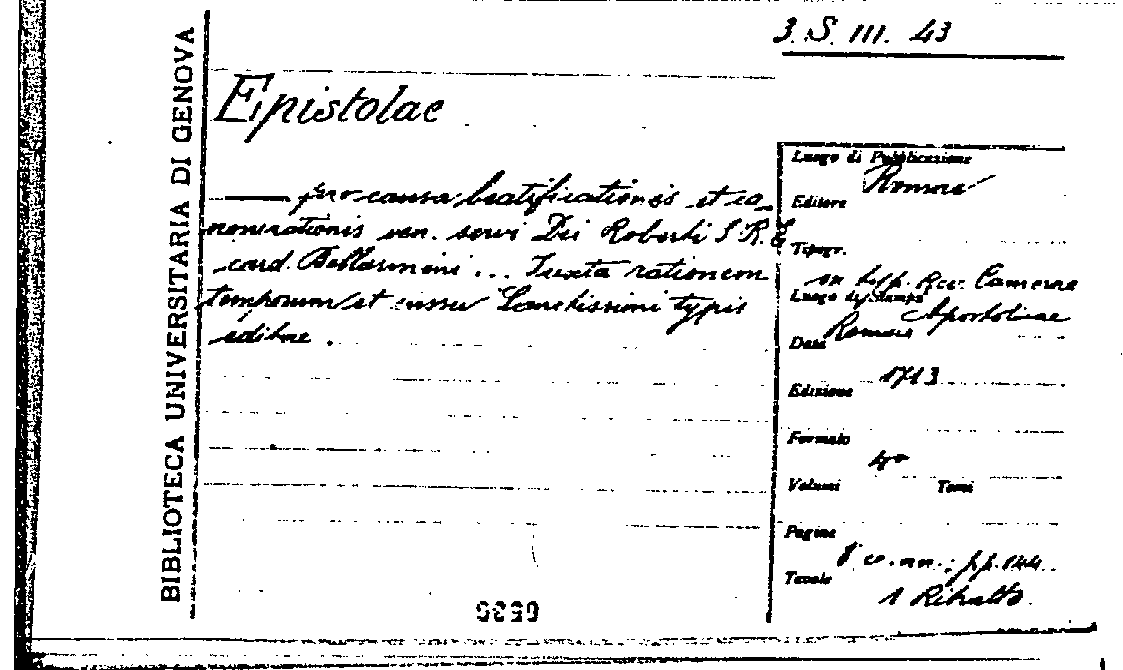 3. S. III. 43
BIBLIOTECA UNIVERSITARIA DI GENOVA
Epistolae
—— pro causa beatificationis et ca_
nonizationis ven. servi Dei Roberti S. R. E.
card. Bellarmini ... Iuxta rationem
temporum et iussu Sanctissimi typis
editae.
Luogo di Pubblicazione
Romae
Editore
Tipogr.
ex typ. Rev. Camerae
Apostolicae
Luogo di Stampa
Romae
Data
1713
Edizione
Formato
4°
Volumi Tomi
Pagine
8 cc. nn.; pp. 144.
Tavole
1 Ritratto.